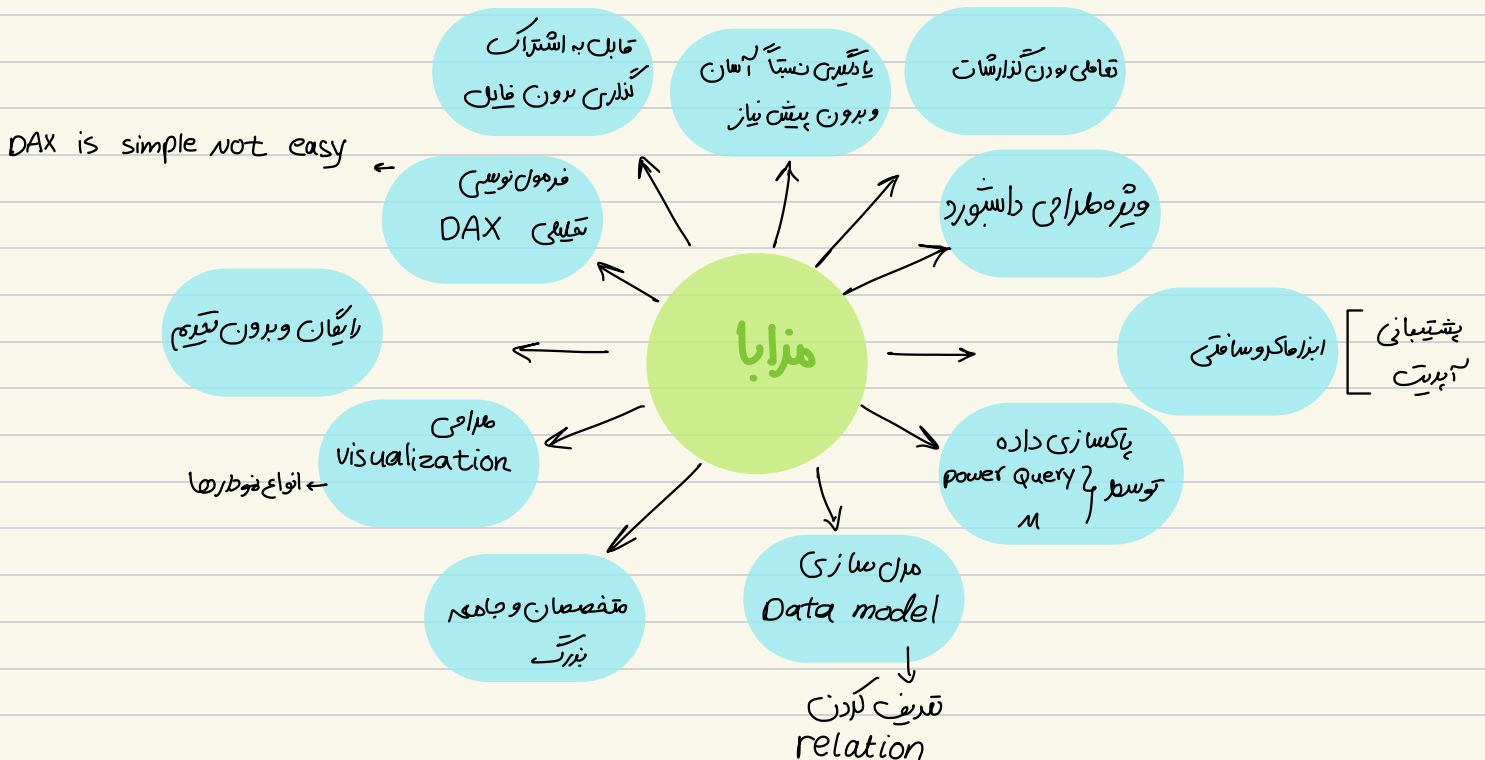 مزایا
قابل به اشتراک
گذاری بدون فایل
یادگیری نسبتاً آسان
و بدون پیش نیاز
تعاملی بودن گذارشات
ویژه طراحی داشبورد
ابزار ماکروسافتی
پشتیبانی
آپدیت
پاکسازی داده
توسط power Query
M
مدل سازی
Data model
تعریف کردن
relation
متخصصان و جامعه
بزرگ
طراحی
visualization
انواع نمودارها
رایگان و بدون تحریم
فرمول نویسی
DAX
DAX is simple not easy